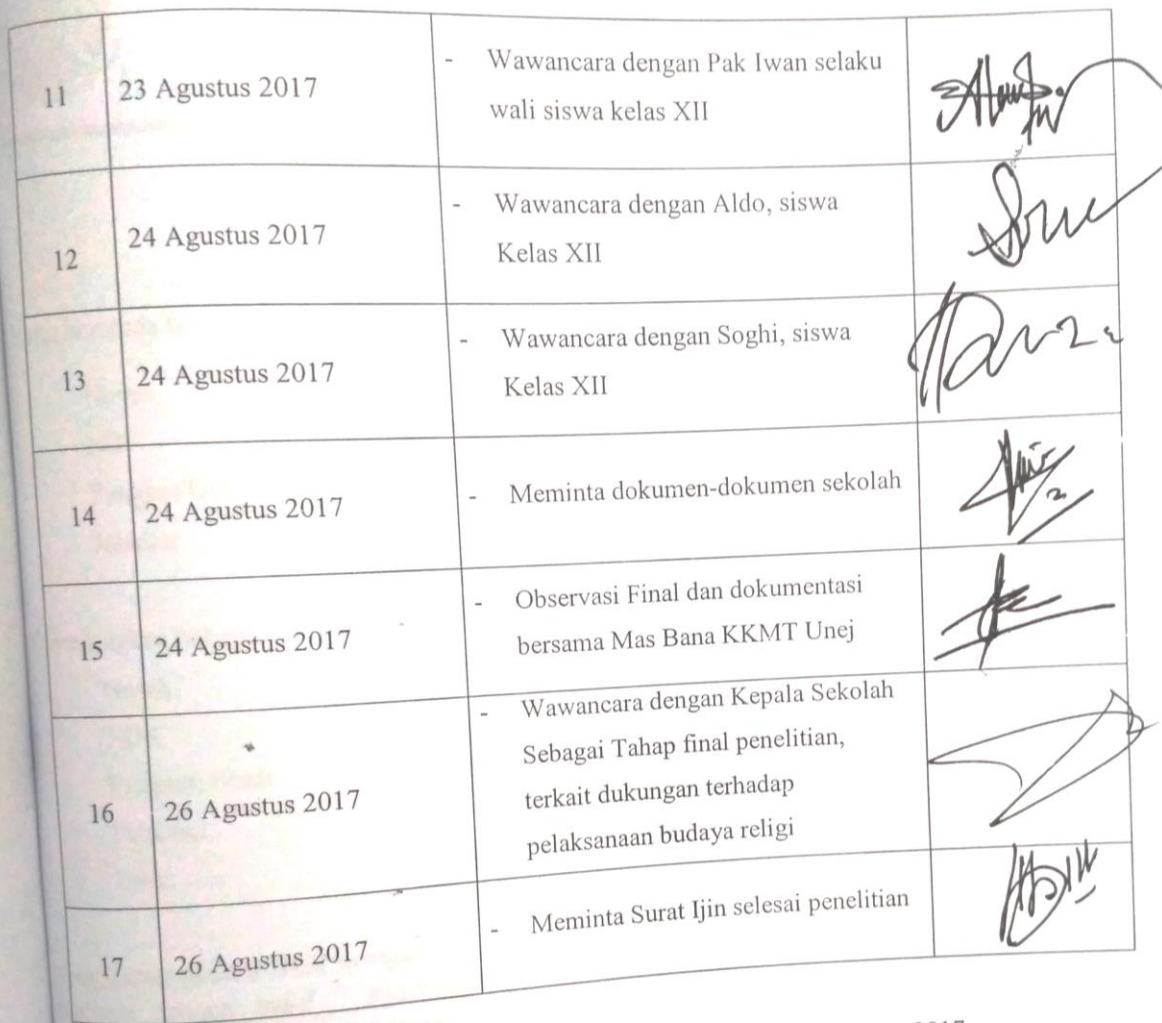 11 23 Agustus 2017 - Wawancara dengan Pak Iwan selaku
wali siswa kelas XII
12 24 Agustus 2017 - Wawancara dengan Aldo, siswa
Kelas XII
13 24 Agustus 2017 - Wawancara dengan Soghi, siswa
Kelas XII
14 24 Agustus 2017 - Meminta dokumen-dokumen sekolah
15 24 Agustus 2017 - Observasi Final dan dokumentasi
bersama Mas Bana KKMT Unej
16 26 Agustus 2017 - Wawancara dengan Kepala Sekolah
Sebagai Tahap final penelitian,
terkait dukungan terhadap
pelaksanaan budaya religi
17 26 Agustus 2017 - Meminta Surat Ijin selesai penelitian